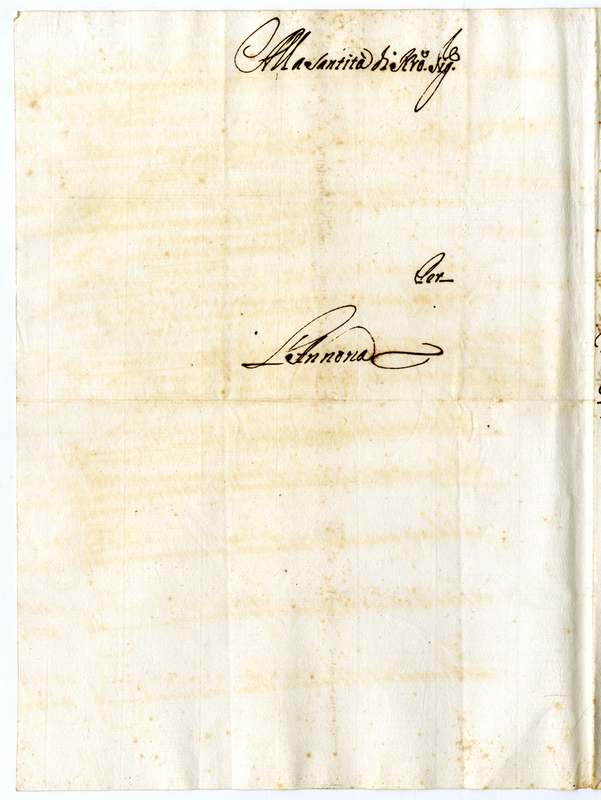 Alla Santità di Nrõ. Sig.re
Per
L'Annona